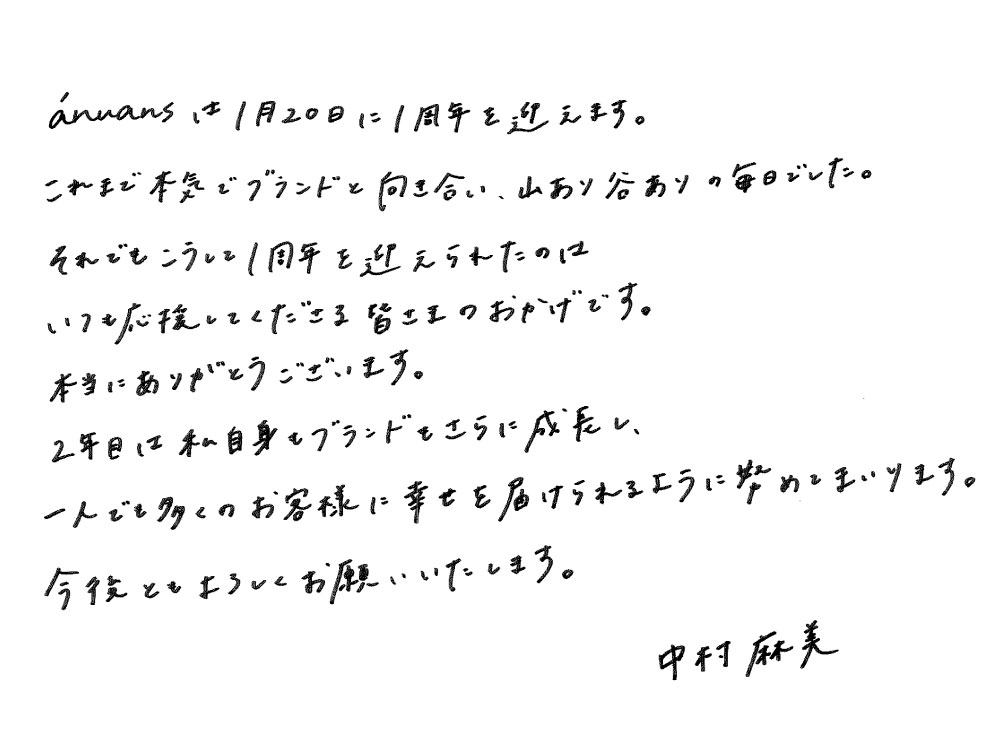 ánuansは1月20日に1周年を迎えます。
これまで本気でブランドと向き合い、山あり谷ありの毎日でした。
それでもこうして1周年を迎えられたのは
いつも応援してくださる皆さまのおかげです。
本当にありがとうございます。
2年目は私自身もブランドもさらに成長し、
一人でも多くのお客様に幸せを届けられるように努めてまいります。
今後ともよろしくお願いいたします。
中村麻美